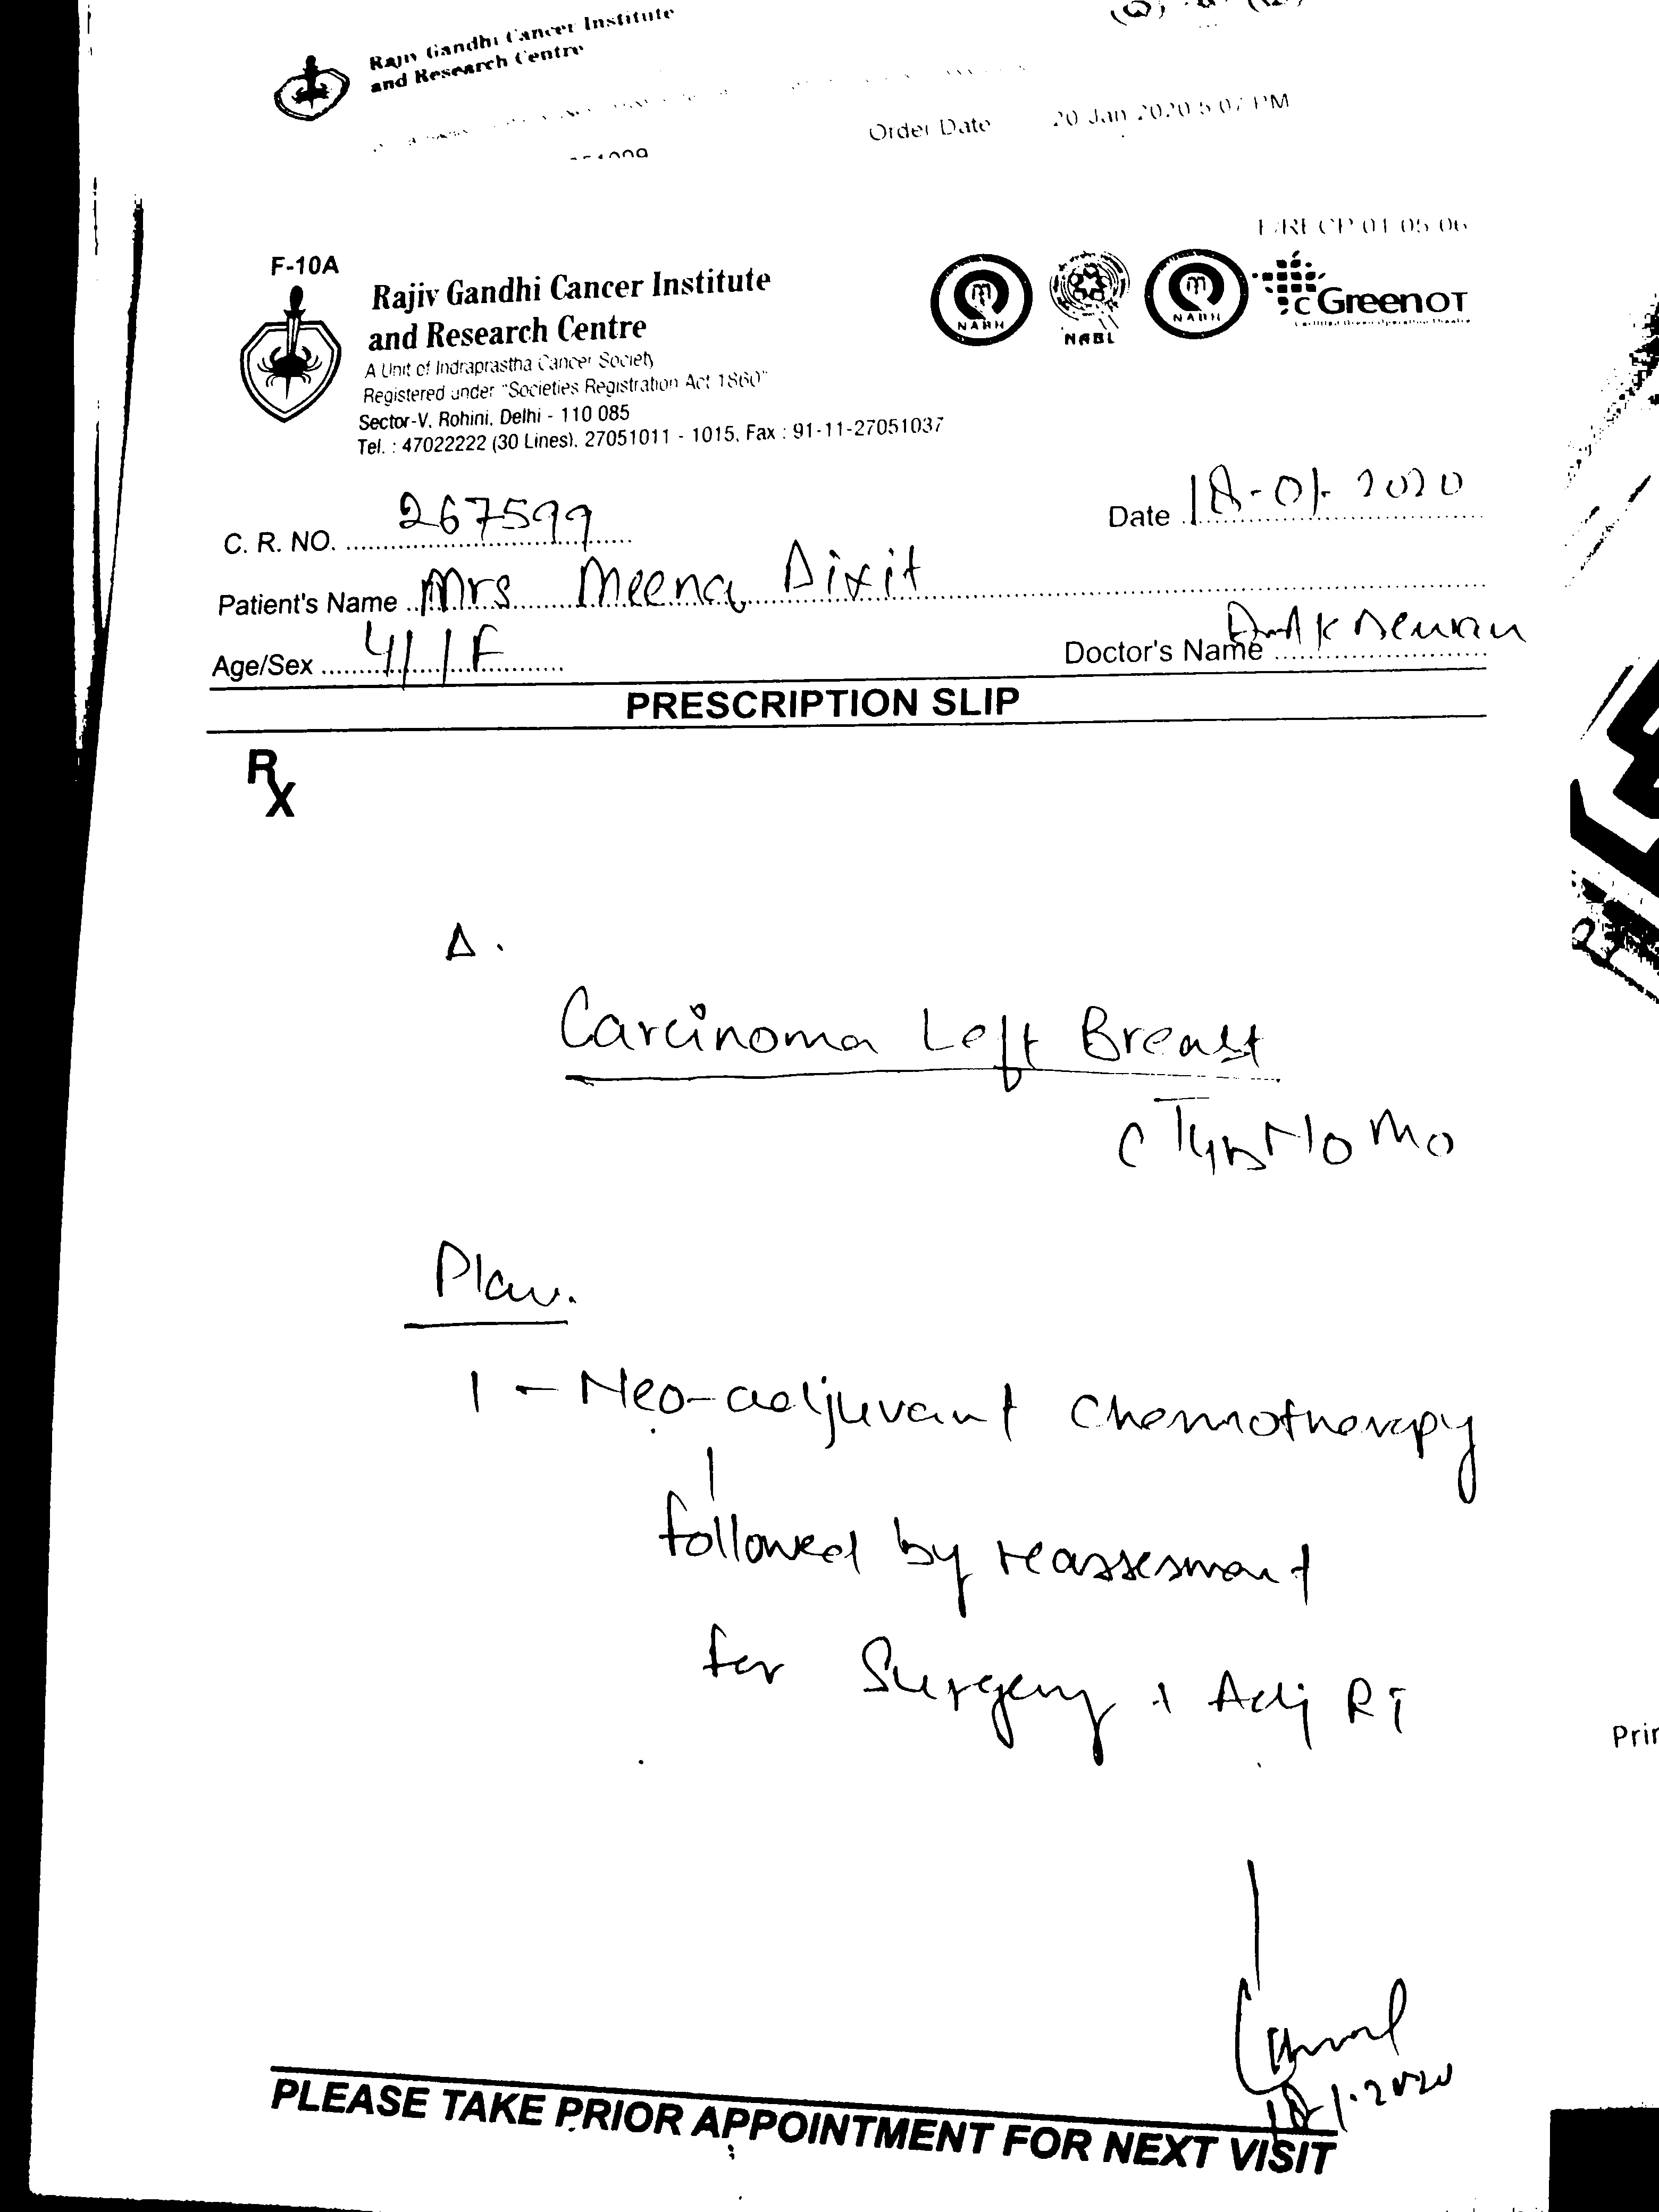 Rajiv Gandhi Cancer Institute
and Research Centre
Order Date 20 Jan 2020 5 07 PM
F/RECP 01 05 06
F-10A
Rajiv Gandhi Cancer Institute
and Research Centre
A Unit of Indraprastha Cancer Society
Registered under "Societies Registration Act 1860"
Sector-V, Rohini, Delhi - 110 085
Tel. : 47022222 (30 Lines), 27051011 - 1015, Fax : 91-11-27051037
NABH
NABL
NABH
GreenOT
C. R. NO. 267599
Date 18-01-2020
Patient's Name Mrs Meena Dixit
Age/Sex 41/F
Doctor's Name
PRESCRIPTION SLIP
Rx
Δ.
Carcinoma Left Breast
cT4bN0M0
Plan.
1 - Neo-adjuvant Chemotherapy
followed by reassesment
for Surgery + Adj RT
18-1-2020
PLEASE TAKE PRIOR APPOINTMENT FOR NEXT VISIT